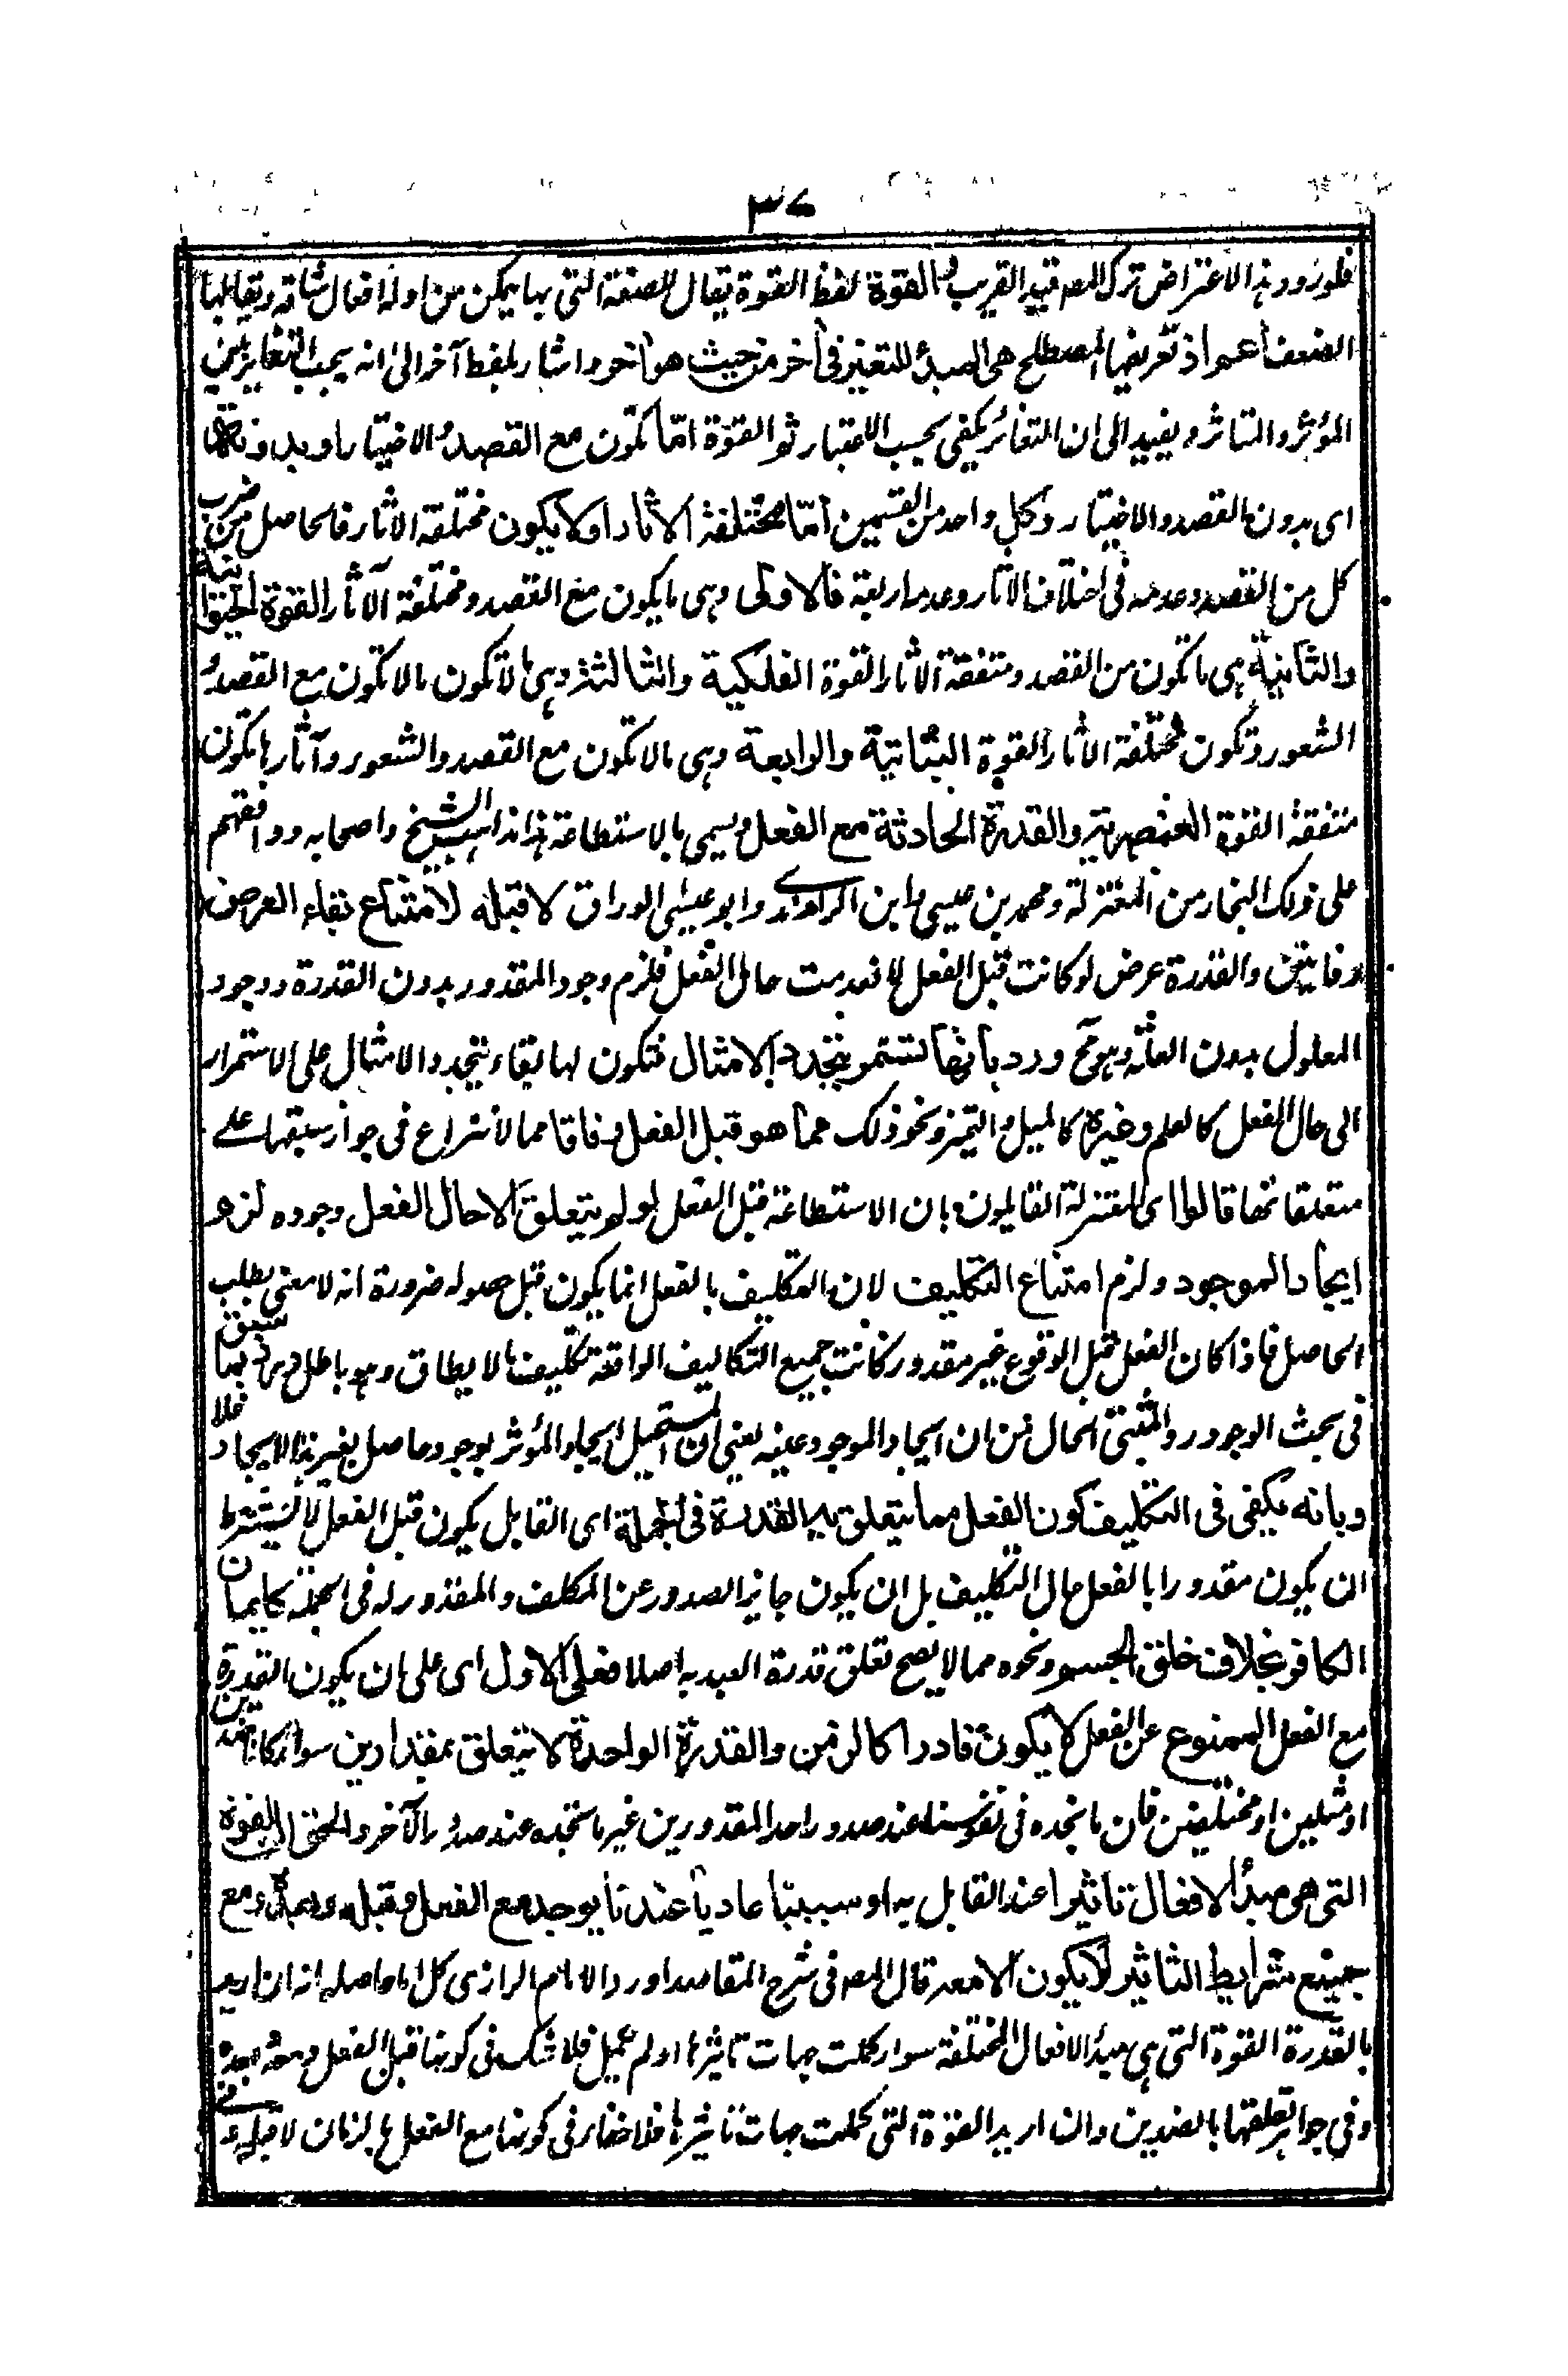 ٣٧
فلورود هذا الاعتراض ترك المصـ قيد القريب والقوة لفظ القوة يقال للصفة التى بها يمكن من اوله افعال شاقه ويقابلها
الضعف اعم اذ تعريفها المصطلح هى المبدأ للتغير فى آخر من حيث هو آخر واشار بلفظ آخر الى انه يجب التغاير بين
المؤثر والمتاثر و يفيد الى ان التغائر يكفى بحسب الاعتبار ثم القوة امّا تكون مع القصد و الاختيار او بدونهما
اى بدون القصد والاختيار وكل واحد من القسمين امّا مختلفة الآثار او لا يكون مختلفة الاثار فالحاصل من ضرب
كل من القصد وعدمه فى اختلاف الآثار وعدمه اربعة فالاولى وهى ما يكون مع القصد ومختلفة الآثار القوة الحيوانية
والثانية هى ما تكون من القصد ومتفقة الآثار القوة الفلكية والثالثة وهى ما لا تكون مع القصد و
الشعور وتكون مختلفة الآثار القوة النباتية والرابعة وهى ما لا تكون مع القصد والشعور وآثارها تكون
متفقة القوة العنصرية والقدرة الحادثة مع الفعل ويسمى بالاستطاعة هذا مذهب الشيخ واصحابه ووافقهم
على ذلك النجار من المعتزلة ومحمد بن عيسى وابن الراوندى وابو عيسى الوراق لا قبله لامتناع بقاء العرض
وقابتين والقدرة عرض لو كانت قبل الفعل لانعدمت حال الفعل فلزم وجود المقدور بدون القدرة ووجود
المعلول بدون العلة وهو مح ورد بانها تستمر بتجدد الامثال فتكون لها بقاء بتجدد الامثال على الاستمرار
الى حال الفعل كالعلم وغيره كالميل والتميز ونحو ذلك مما هو قبل الفعل وفاقا مما لا نزاع فى جواز سبقها على
متعلقاتها قالوا اى المعتزلة القايلون بان الاستطاعة قبل الفعل لو لم يتعلق الا حال الفعل وجوده لزم
ايجاد الموجود ولزم امتناع التكليف لان التكليف بالفعل انما يكون قبل حصوله ضرورة انه لا معنى لطلب
الحاصل فاذا كان الفعل قبل الوقوع غير مقدور كانت جميع التكاليف الواقعة تكليف ما لا يطاق وهو باطل ورد بما سبق
فى بحث الوجود والمثبتى الحال من ان ايجاد الموجود عينه يعنى ان المستحيل ايجاد المؤثر بوجود حاصل بغير هذا الايجاد فلا
وبانه يكفى فى التكليف كون الفعل مما يتعلق به القدرة فى الجملة اى القابل يكون قبل الفعل لا يشترط
ان يكون مقدورا بالفعل حال التكليف بل ان يكون جايز الصدور عن المكلف والمقدور له فى الجملة كايمان
الكافر بخلاف خلق الجسم ونحوه مما لا يصح تعلق قدرة العبد به اصلا فعلى الاول اى على ان يكون القدرة
مع الفعل الممنوع عن الفعل لا يكون قادرا كالزمن والقدرة الواحدة لا يتعلق بمقدورين سواء كانا ضدين
او مثلين او مختلفين فان ما نجده فى نفوسنا عند صدور احد المقدورين غير ما نجده عند صدور الآخر والحق ان القوة
التى هى مبدأ الافعال تاثيرا عند القابل به او سببًا عاديًا عندنا يوجد مع الفعل وقبله وبعده ومع
جميع شرايط التاثير لا يكون الا معه قال المصـ فى شرح المقاصد اورد الامام الرازى كلاما حاصله انه ان اريد
بالقدرة القوة التى هى مبدأ الافعال المختلفة سواء كملت جهات تاثيرها او لم تكمل فلا شك فى كونها قبل الفعل ومعه وبعده
وفى جواز تعلقها بالضدين وان اريد القوة التى كملت جهات تاثيرها فلا خفاء فى كونها مع الفعل بالزمان لا قبله و فى